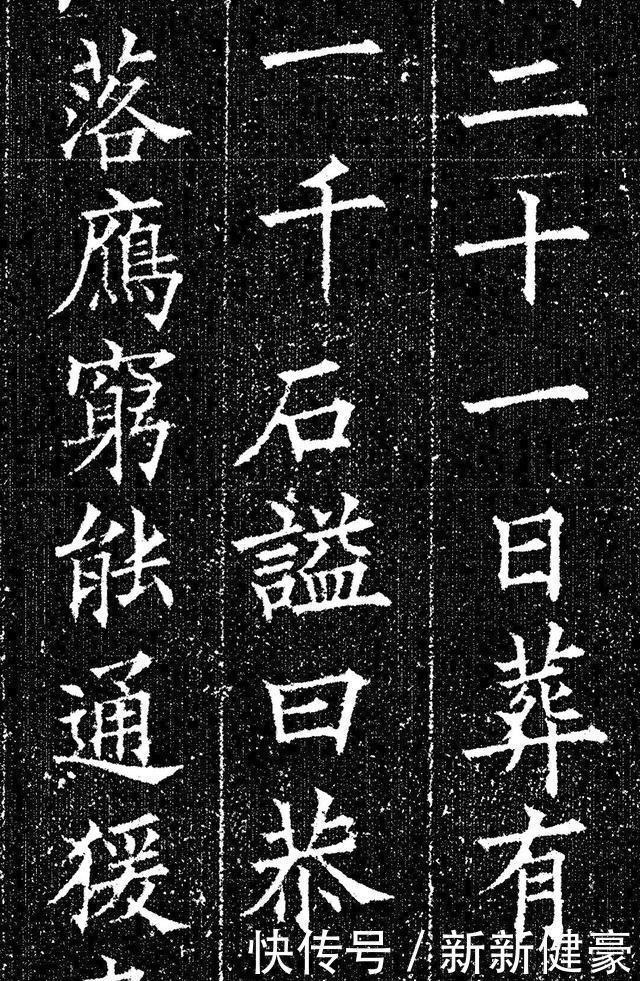 二十一日葬有
一千石謚曰恭
落鴈窮能通猨
快传号/新新健豪